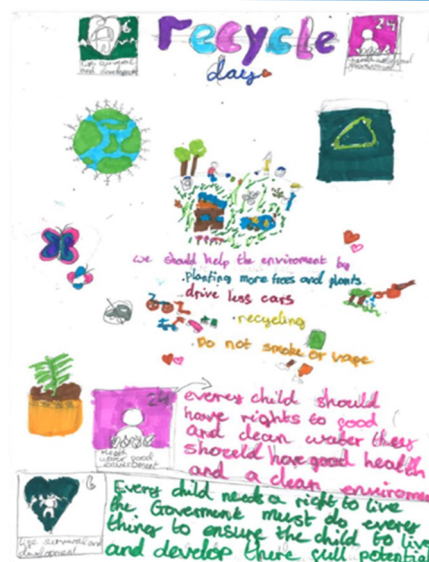 6
recycle
24
day
Life survival
and development
we should help the enviroment by
.planting more trees and plants.
.drive less cars
.recycling
Do not smoke or vape
24
Health
water good
environment
every child should
have rights to good
and clean water they
should have good health
and a clean enviroment
6
Life survival and
development
Every child needs a right to live
the Goverment must do every
thing to ensure the child to live
and develop there full potential